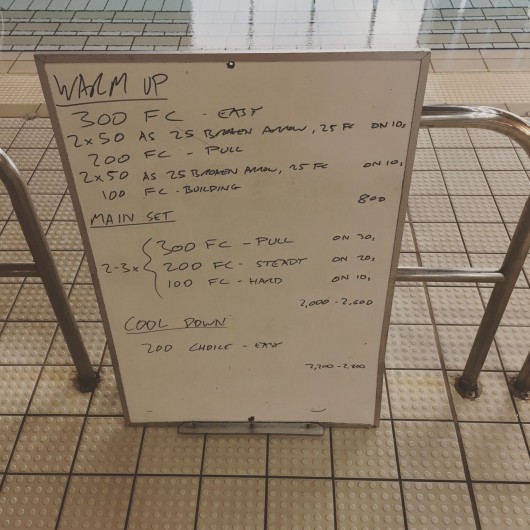 WARM UP
300 FC - EASY
2x50 AS 25 BROKEN ARROW, 25 FC ON 10s
200 FC - PULL
2x50 AS 25 BROKEN ARROW, 25 FC ON 10s
100 FC - BUILDING
800
MAIN SET
300 FC - PULL ON 30s
2-3x { 200 FC - STEADY ON 20s
100 FC - HARD ON 10s
2,000 - 2,600
COOL DOWN
200 CHOICE - EASY
2,200 - 2,800